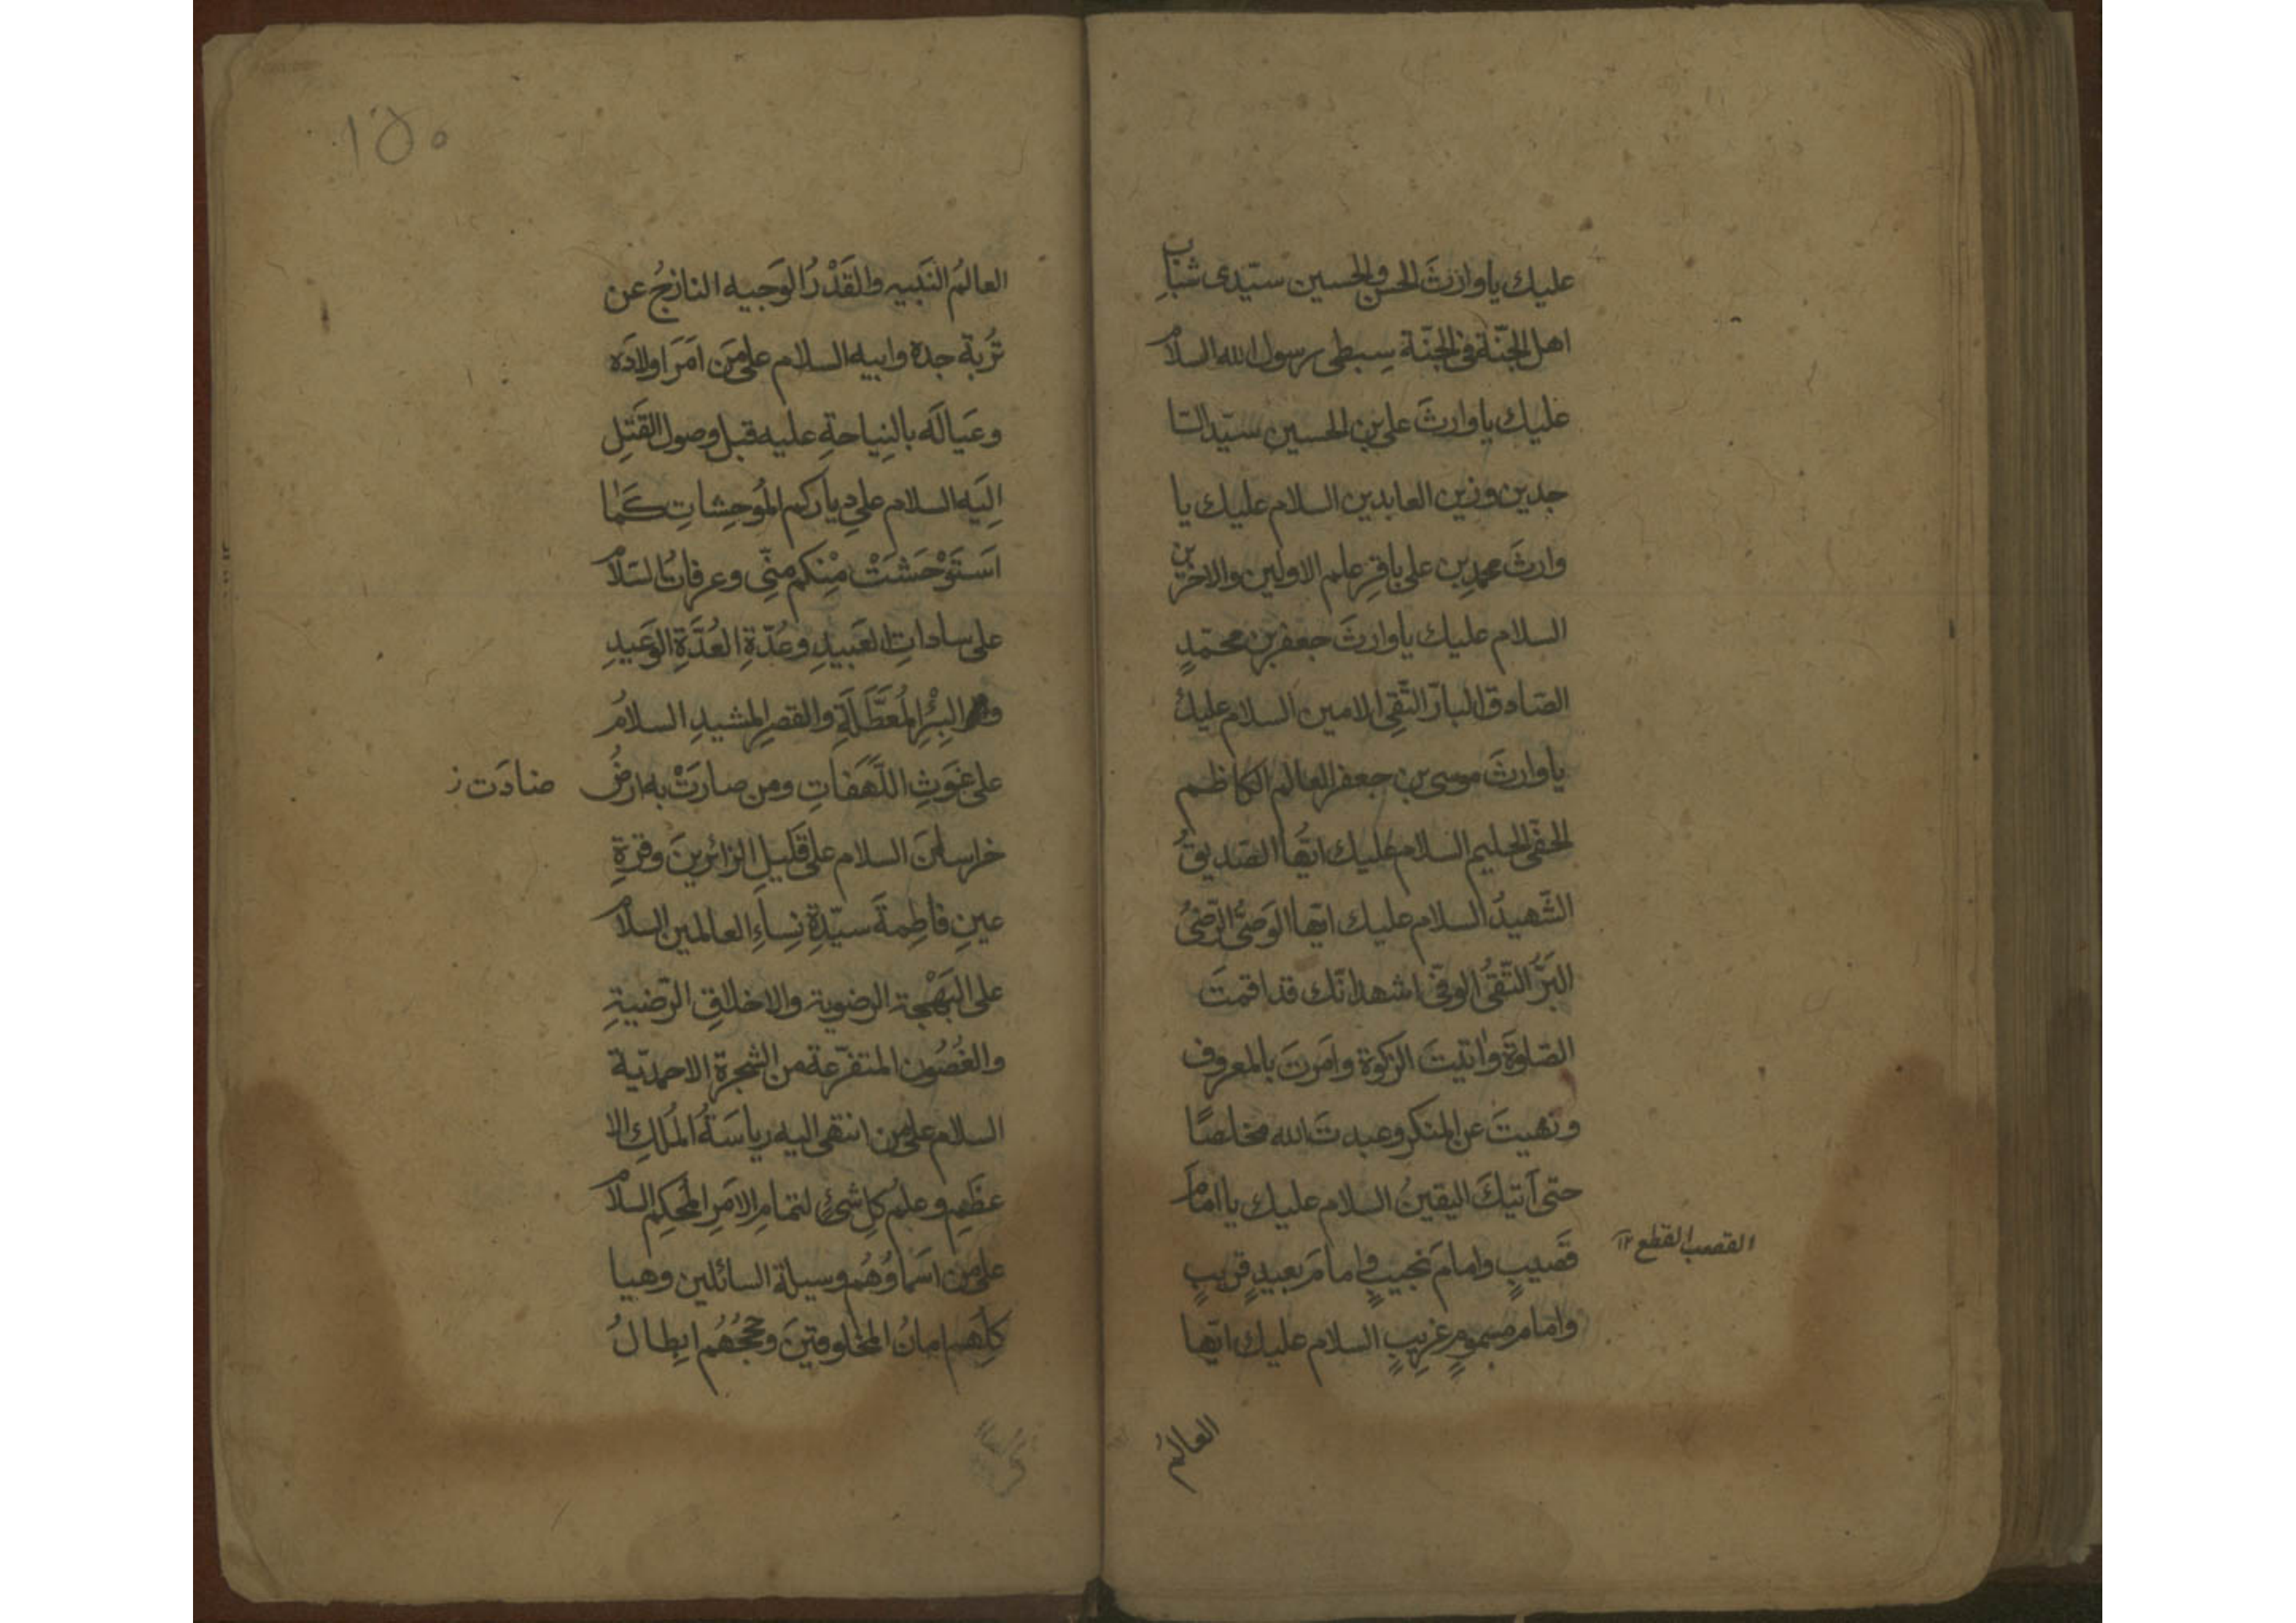 عليك يا وارثَ الحسن والحسين سيّدى شبابِ
اهل الجنّة فى الجنّة سِبطى رسول الله السلامُ
عليك يا وارثَ على بن الحسين سيّد السّا
جدين وزين العابدين السلام عليك يا
وارثَ محمدِ بن على باقِرِ علم الاولين والاخرين
السلام عليك يا وارثَ جعفر بن محمّدٍ
الصّادق البارّ التّقى الامين السلام عليك
يا وارثَ موسى بن جعفر العالم الكاظم
الحفّى الحليم السلام عليك ايّها الصّديقُ
الشّهيدُ السلام عليك ايّها الوَصىُّ الرّضىُ
البَرّ التّقىُّ الوفىّ اشهد انّك قد اقمتَ
الصّلوةَ واتيتَ الزكوة وامَرتَ بالمعروف
ونهيتَ عن المنكر وعبدتَ الله مخلصًا
حتى آتيكَ اليقينُ السلام عليك يا امامَ
قَصيبٍ وامامَ نجيبٍ وامامَ بعيدٍ قريبٍ
القصب القطع ١٢
وامام مسمومٍ غريبٍ السلام عليك ايّها
العالمُ
١٥٠
العالمُ النَبيه والقَدْرُ الوَجيه النازحُ عن
تُربة جده وابيه السلام على مَن امَرَ اولادَه
وعَيالَه بالنِياحةِ عليه قبل وصول القَتلِ
اِلَيه السلام على دياركم المُوحِشاتِ كَمٰا
اسَتَوْحَشَتْ مِنْكم مِنّى وعرفاتُ السّلامُ
على ساداتِ العَبيدِ وعُدّةِ العُدَّةِ الوَعَيدِ
والبِئْرِ المُعَطَّلَةِ والقصرِ المشيدِ السلامُ
على غَوَثِ اللَّهَفاتِ ومن صارَتْ به ارضُ
صادَت ز
خراسانَ السلام على قَليلِ الزائرينَ وقرةِ
عينِ فاطِمةَ سيّدةِ نِساءِ العالمين السلامُ
على البَهْجة الرضوية والاخلاقِ الرّضيةِ
والغُصُون المتفرّعة من الشجرة الاحمديّة
السلام على من انتهى اليه رياسَةُ المُلكِ الا
عظَمِ وعلمُ كلِ شئ لتمامِ الامَرِ المُحكِم السلامُ
على من اسَماؤهُم وسيلة السائلين وهيا
كلَهم امانُ المخلوقينَ وحججُهُم ابِطالُ